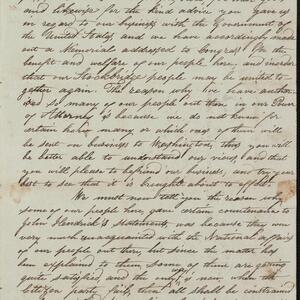 and likewise for the kind advice you gave us
in regard to our business with the Government of
the United States and we have accordingly made
out a Memorial addressed to Congress for the
benefit and welfare of our people here, and in order
that our Stockbridge people may be united to-
gether again. The reason why we have author-
ized so many of our people out there in our Power
of Attorney is because we do not know for
certain how many or which ones of them will
be sent on business to Washington, thus you will
be better able to understand our views, and that
you will please to befriend our business, and try your
best to see that it is brought about to effect.
We must now tell you the reason why
some of our people here gave certain countenance to
John Hendrick's statements, was because they were
very much unacquainted with the National Affairs
of our people out there, but since the matter has
been explained to them some of them are going
quite satisfied and the only way is now when the
Citizen party fails, then all shall be constrained